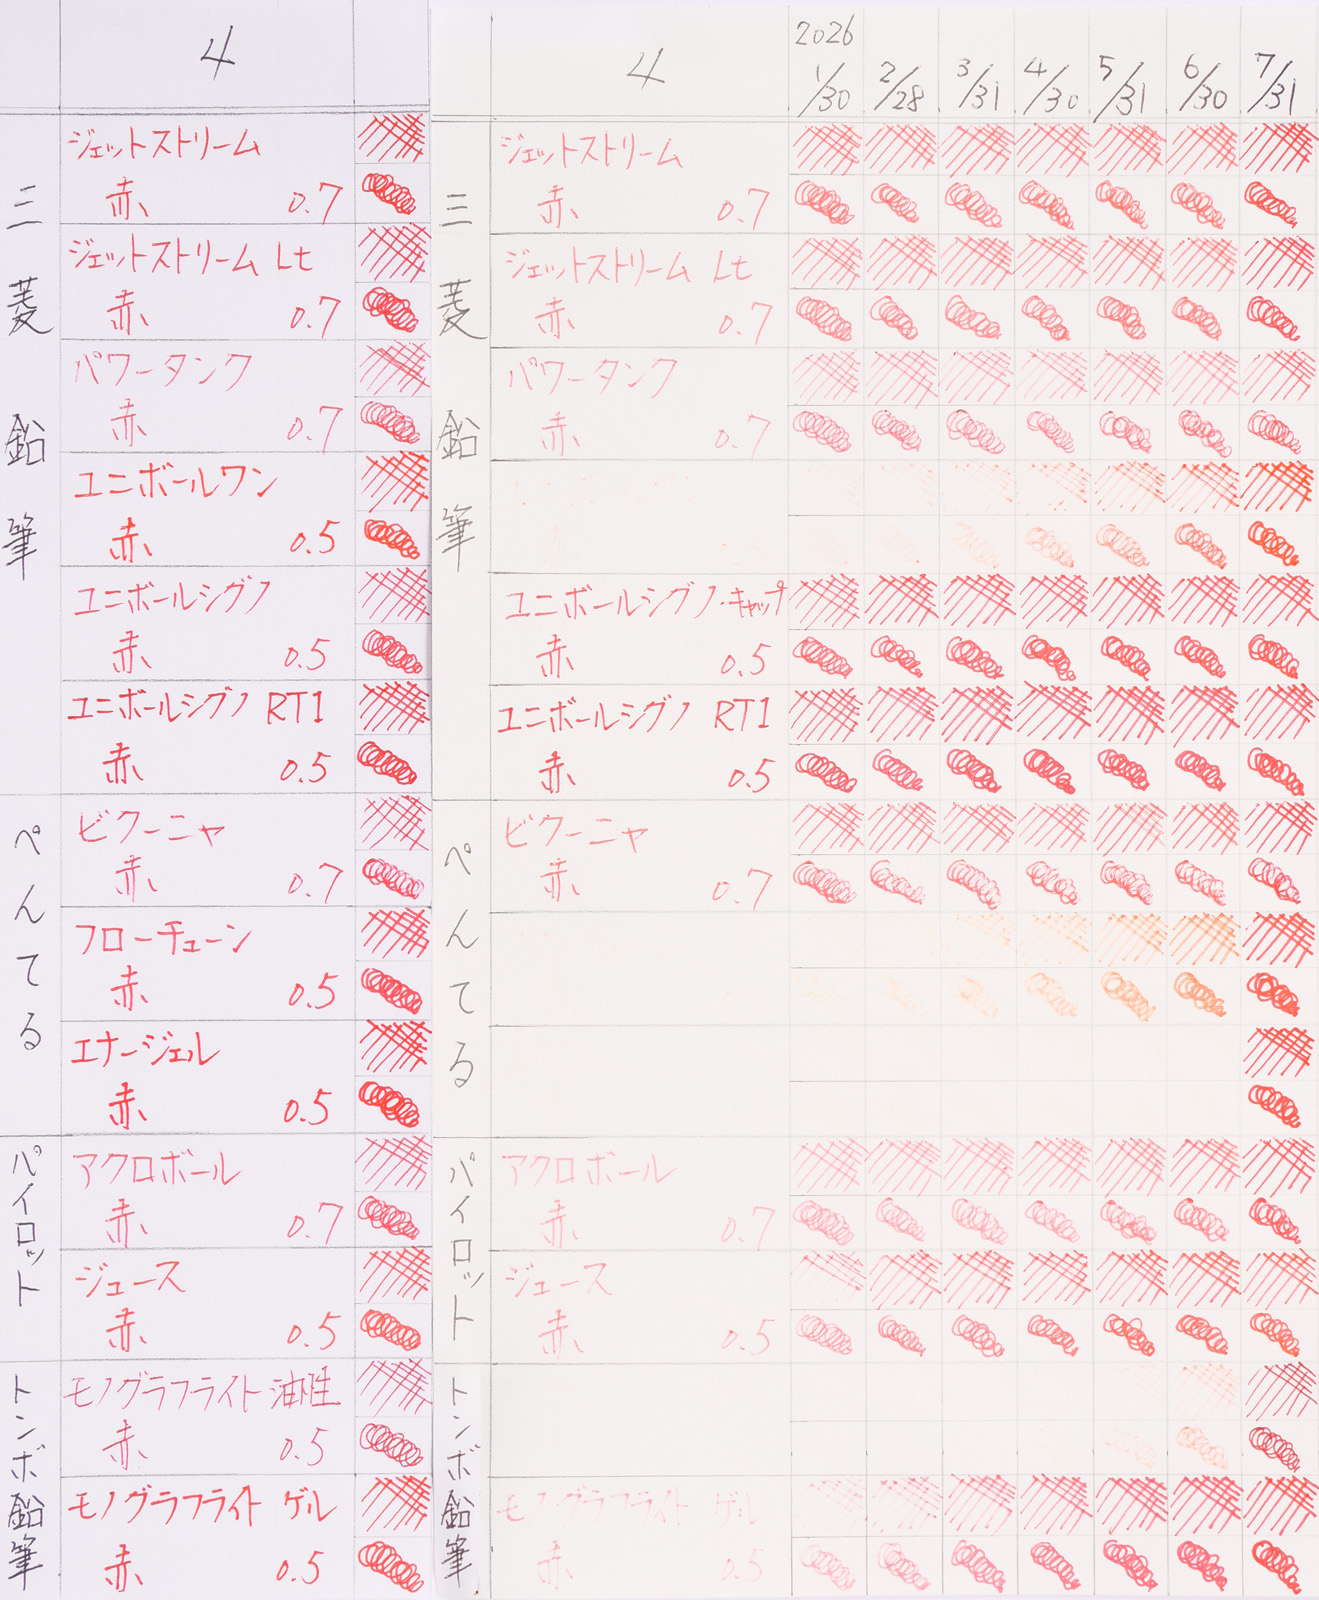 4
三菱鉛筆
ジェットストリーム
赤 0.7
ジェットストリーム Lt
赤 0.7
パワータンク
赤 0.7
ユニボールワン
赤 0.5
ユニボールシグノ
赤 0.5
ユニボールシグノ RT1
赤 0.5
ぺんてる
ビクーニャ
赤 0.7
フローチューン
赤 0.5
エナージェル
赤 0.5
パイロット
アクロボール
赤 0.7
ジュース
赤 0.5
トンボ鉛筆
モノグラフライト 油性
赤 0.5
モノグラフライト ゲル
赤 0.5
4
2026
1/30 2/28 3/31 4/30 5/31 6/30 7/31
三菱鉛筆
ジェットストリーム
赤 0.7
ジェットストリーム Lt
赤 0.7
パワータンク
赤 0.7
ユニボールシグノ・キャップ
赤 0.5
ユニボールシグノ RT1
赤 0.5
ぺんてる
ビクーニャ
赤 0.7
パイロット
アクロボール
赤 0.7
ジュース
赤 0.5
トンボ鉛筆
モノグラフライト ゲル
赤 0.5